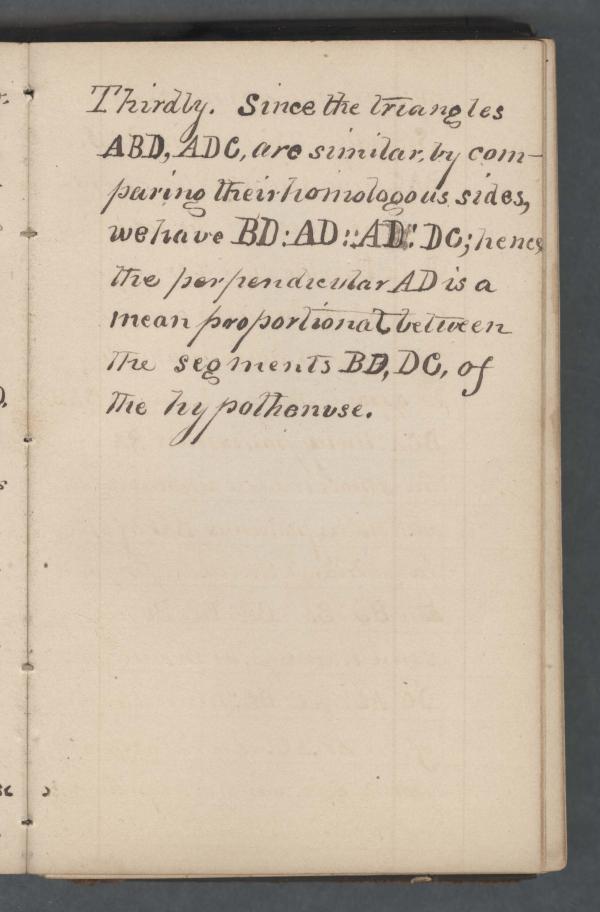 Thirdly. Since the triangles
ABD, ADC, are similar, by com-
paring their homologous sides,
we have BD : AD :: AD : DC; hence
the perpendicular AD is a
mean proportional between
the segments BD, DC, of
the hypothenuse.